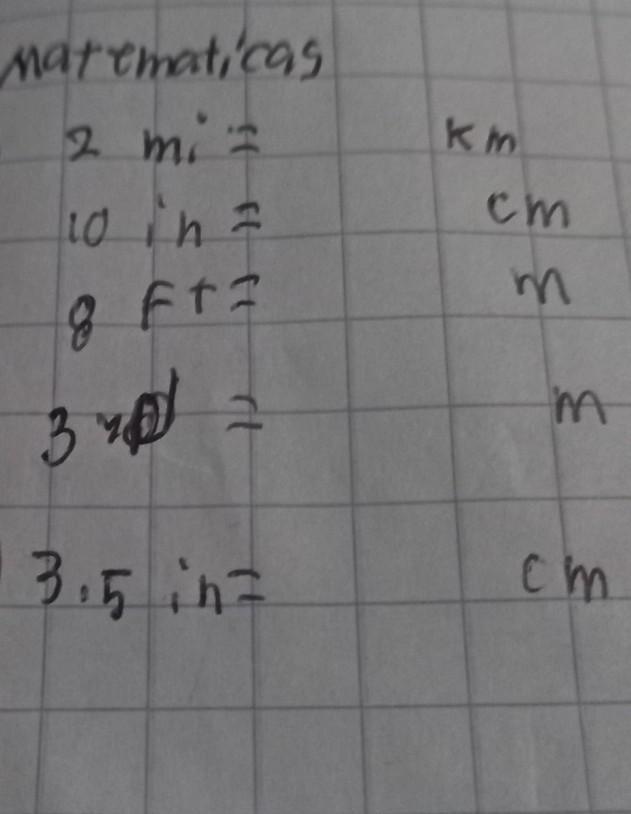 Matematicas
2 mi = km
10 in = cm
8 Ft = m
3 = m
3.5 in = cm